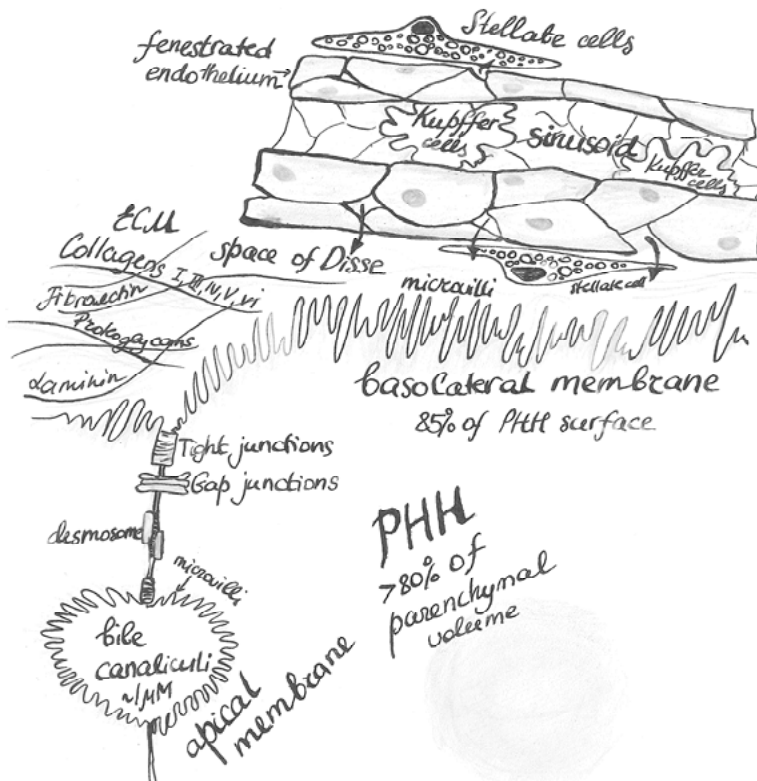 Stellate cells
fenestrated
endothelium→
Kupffer
cells
sinusoid
Kupffer
cells
ECM
Collagens I, III, IV, V, VI
Fibronectin
Proteoglycans
Laminin
space of Disse
microvilli
stellate cell
basolateral membrane
85% of PHH surface
Tight junctions
Gap junctions
desmosome
microvilli
PHH
>80% of
parenchymal
volume
bile
canaliculi
~1μM
apical
membrane